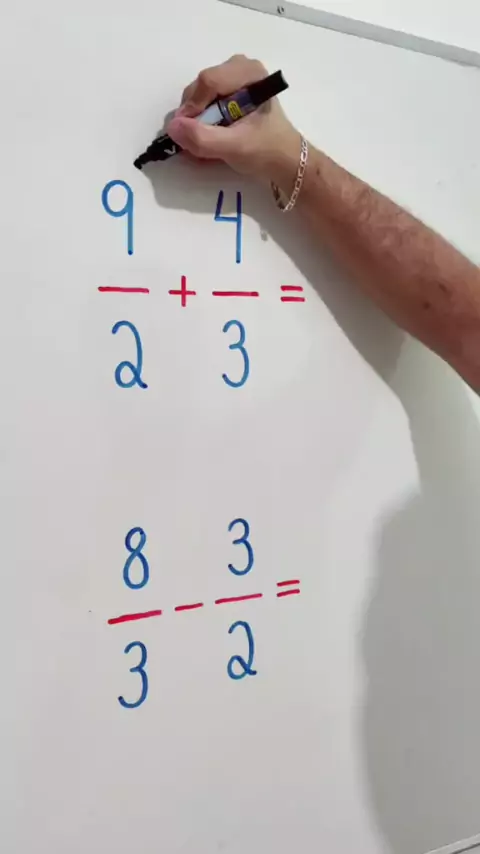 9/2 + 4/3 =
8/3 - 3/2 =